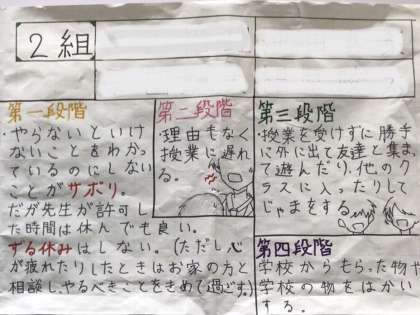 2組
第一段階
・やらないといけ
ないことをわかっ
ているのにしない
ことがサボり。
だが先生が許可し
た時間は休んでも良い。
する休みはしない。(ただし心
が疲れたりしたときはお家の方と
相談し、やるべきことをきめて過ごす。)
第二段階
・理由もなく
授業に遅れ
る。
第三段階
・授業を受けずに勝手
に外に出て友達と集ま
って遊んだり、他のク
ラスに入ったりして
じゃまをする
第四段階
学校からもらった物や
学校の物をはかい
する。